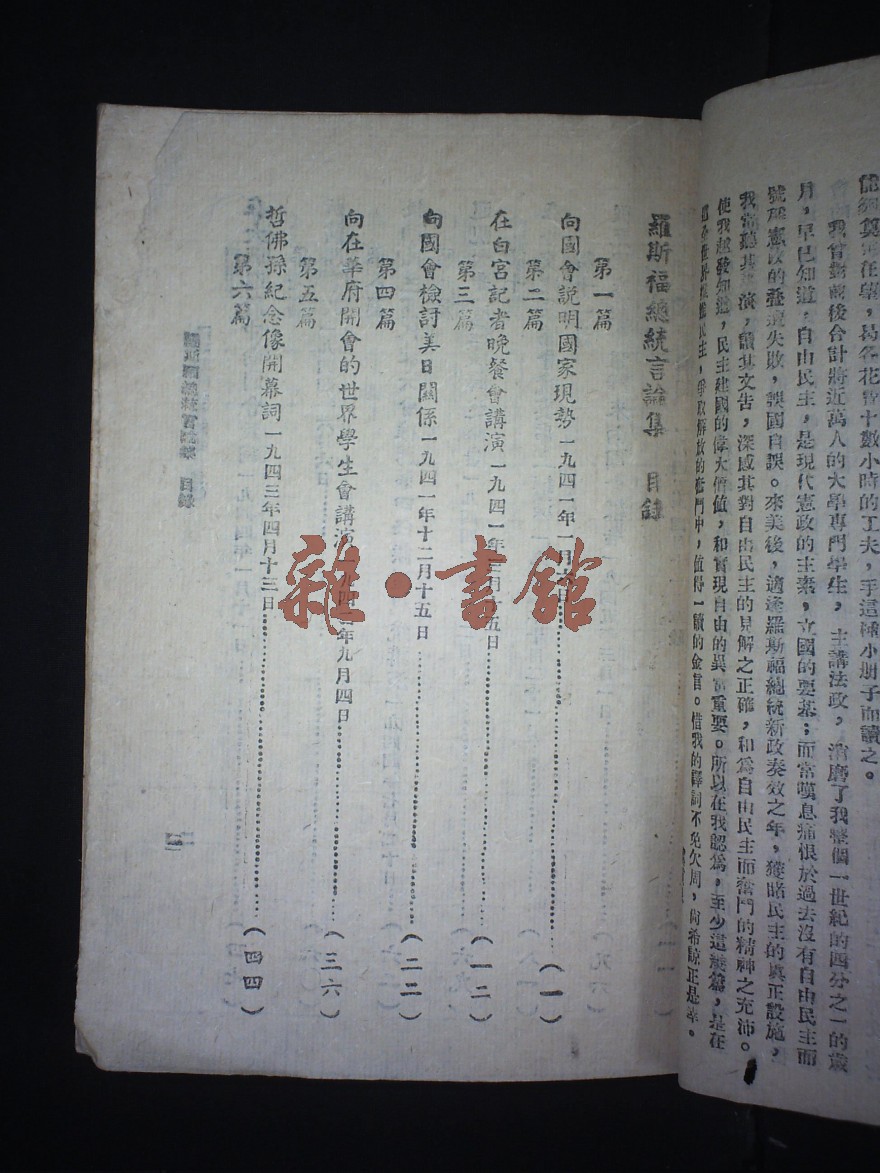 能夠莫
在
易
花會十數小時的工夫,手這
小册子而讀之。
我曾對前後合計將近萬人的大
專門學生,主講法政,消磨了我整個一世紀的四分之一的歲
月,早已知道,自由民主,是現代憲政的主素,立國的要基;而常嘆息痛恨於過去沒有自由民主而
號稱憲政的
遭失敗,誤國自誤。來美後,適逢羅斯福總統新政奏效之年,獲睹民主的真正設施,
我常聽其
演,讀其文告,深感其對自由民主的見解之正確,和爲自由民主而奮鬥的精神之充沛。
使我越發知道,民主建國的偉大價值,和實現自由的異常重要。所以在我認爲,至少這幾篇,是在
主,爭取解放的奮鬥中,值得一讀的金言。惜我的譯詞不免欠周,尚希諒正是幸。
羅斯福總統言論集 目錄
第一篇
向國會說明國家現勢一九四一年一月六日……(一)
第二篇
在白宮記者晚餐會講演一九四一年三月十五日……(一二)
第三篇
向國會檢討美日關係一九四一年十二月十五日……(二二)
第四篇
向在華府開會的世界學生會講演一九四二年九月四日……(三六)
第五篇
哲佛孫紀念像開幕詞一九四三年四月十三日……(四四)
第六篇
羅斯福總統言論集 目錄
一
雜·書館